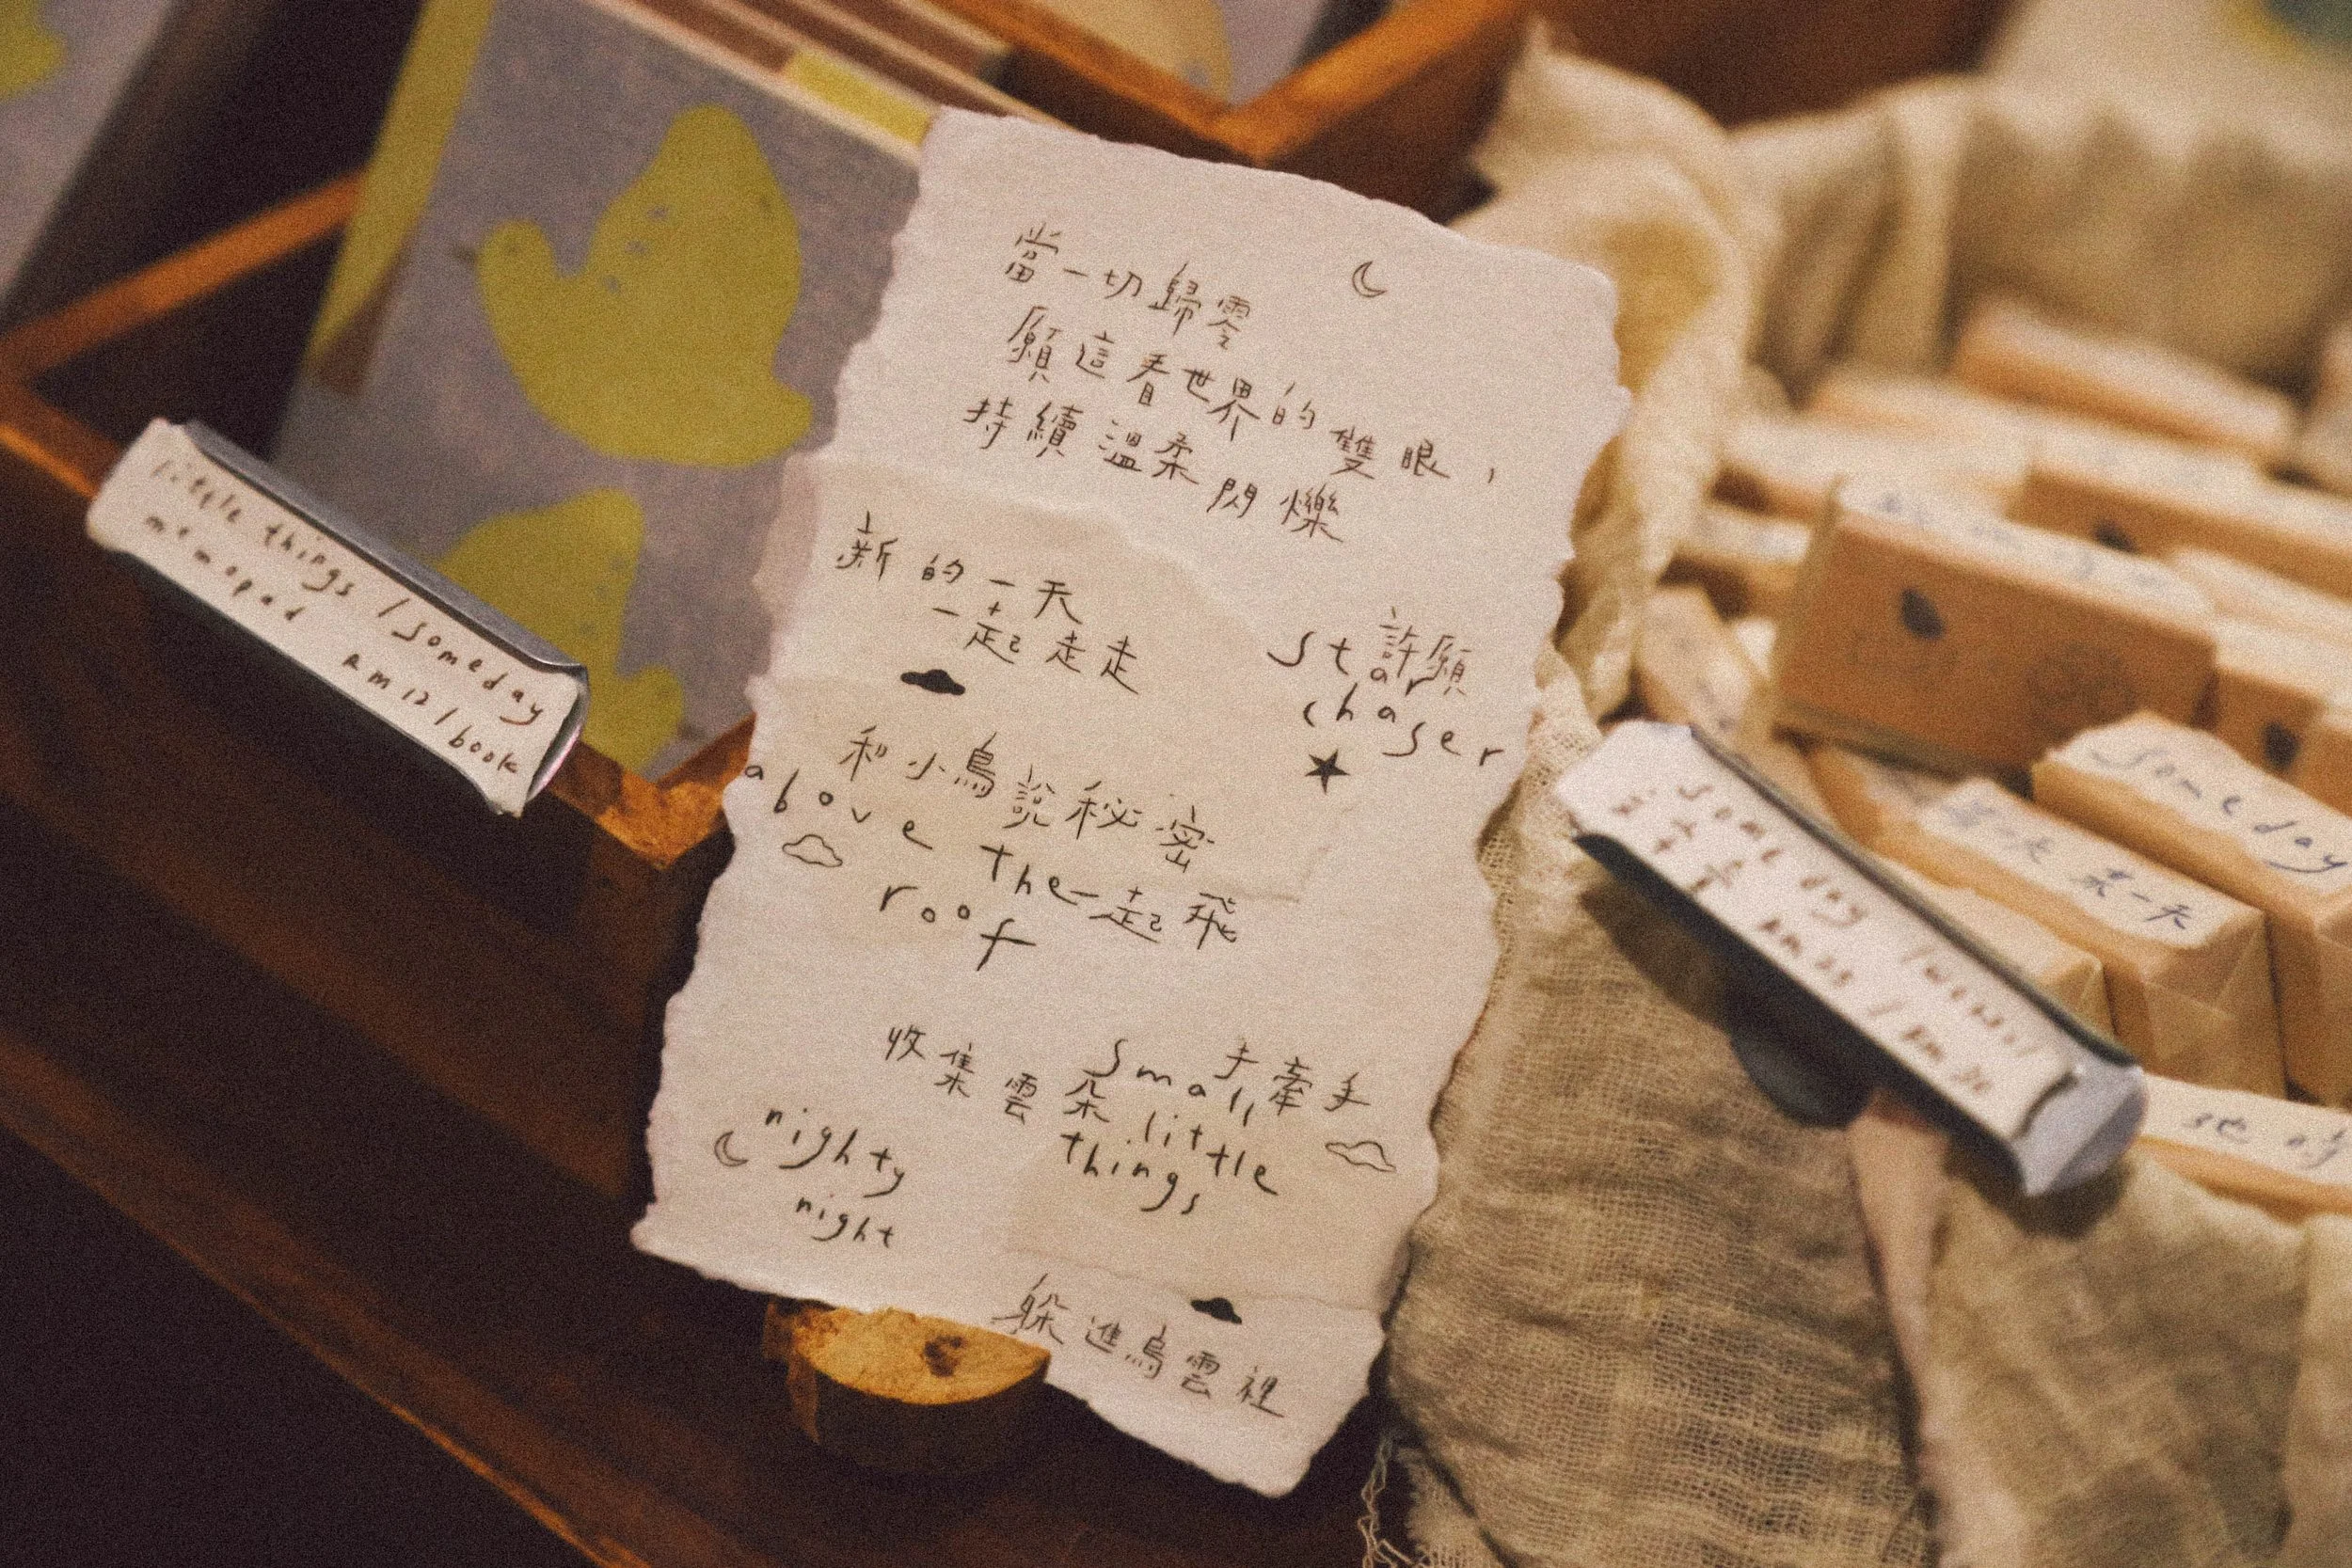 當一切歸零
願這看世界的雙眼，
持續溫柔閃爍
新的一天
一起走走
許願
star
chaser
和小鳥說秘密
above the
roof
一起飛
收集雲朵
手牽手
small
little
things
nighty
night
躲進烏雲裡
little things / someday
memopad
RM12 / book
someday
某一天
地的